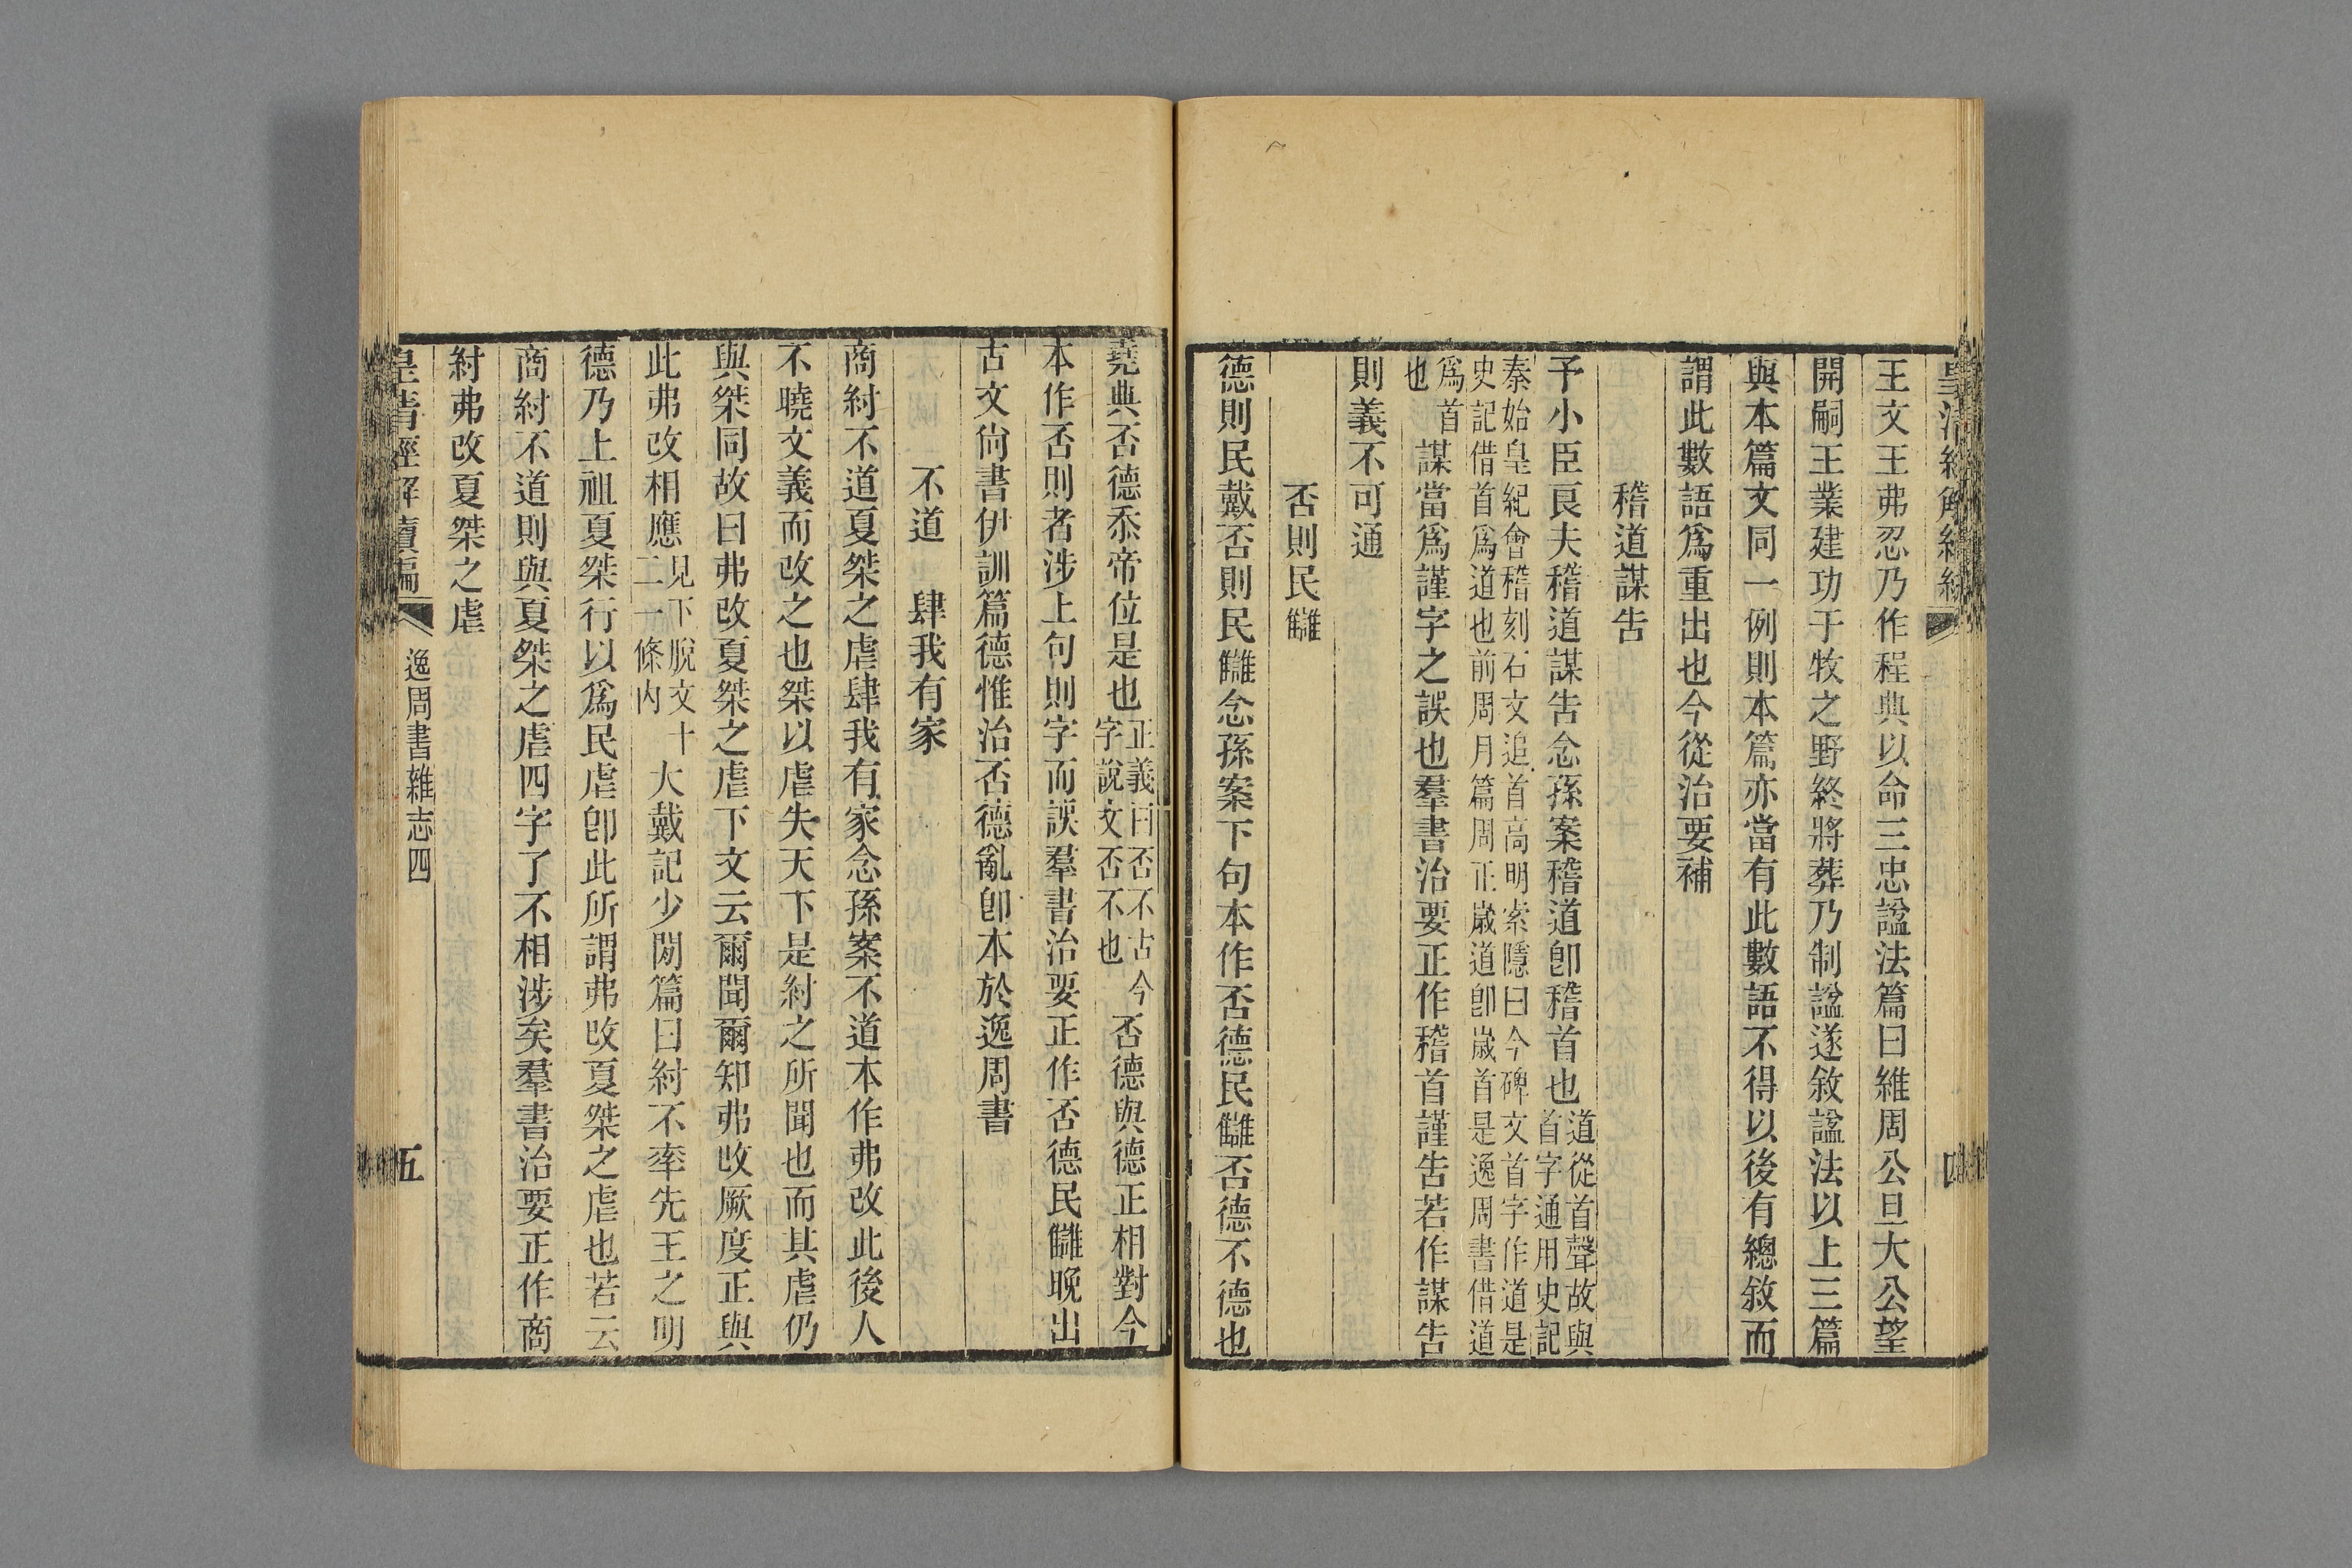 王文王弗忍乃作程典以命三忠諡法篇曰維周公旦大公望
開嗣王業建功于牧之野終將葬乃制諡遂敘諡法以上三篇
與本篇文同一例則本篇亦當有此數語不得以後有總敘而
謂此數語爲重出也今從治要補
稽道謀告
予小臣良夫稽道謀告念孫案稽道卽稽首也道從首聲故與
首字通用史記
秦始皇紀會稽刻石文追首高明索隱曰今碑文首字作道是
史記借首爲道也前周月篇周正歲道卽歲首是逸周書借道
爲首
也
謀當爲謹字之誤也羣書治要正作稽首謹告若作謀告
則義不可通
否則民讎
德則民戴否則民讎念孫案下句本作否德民讎否德不德也
堯典否德忝帝位是也正義曰否不古今
字說文否不也
否德與德正相對今
本作否則者涉上句則字而誤羣書治要正作否德民讎晚出
古文尙書伊訓篇德惟治否德亂卽本於逸周書
不道　肆我有家
商紂不道夏桀之虐肆我有家念孫案不道本作弗改此後人
不曉文義而改之也桀以虐失天下是紂之所聞也而其虐仍
與桀同故曰弗改夏桀之虐下文云爾聞爾知弗改厥度正與
此弗改相應見下脫文十
二一條內
大戴記少閒篇曰紂不率先王之明
德乃上祖夏桀行以爲民虐卽此所謂弗改夏桀之虐也若云
商紂不道則與夏桀之虐四字了不相涉矣羣書治要正作商
紂弗改夏桀之虐
皇清經解續編
逸周書雜志四
五